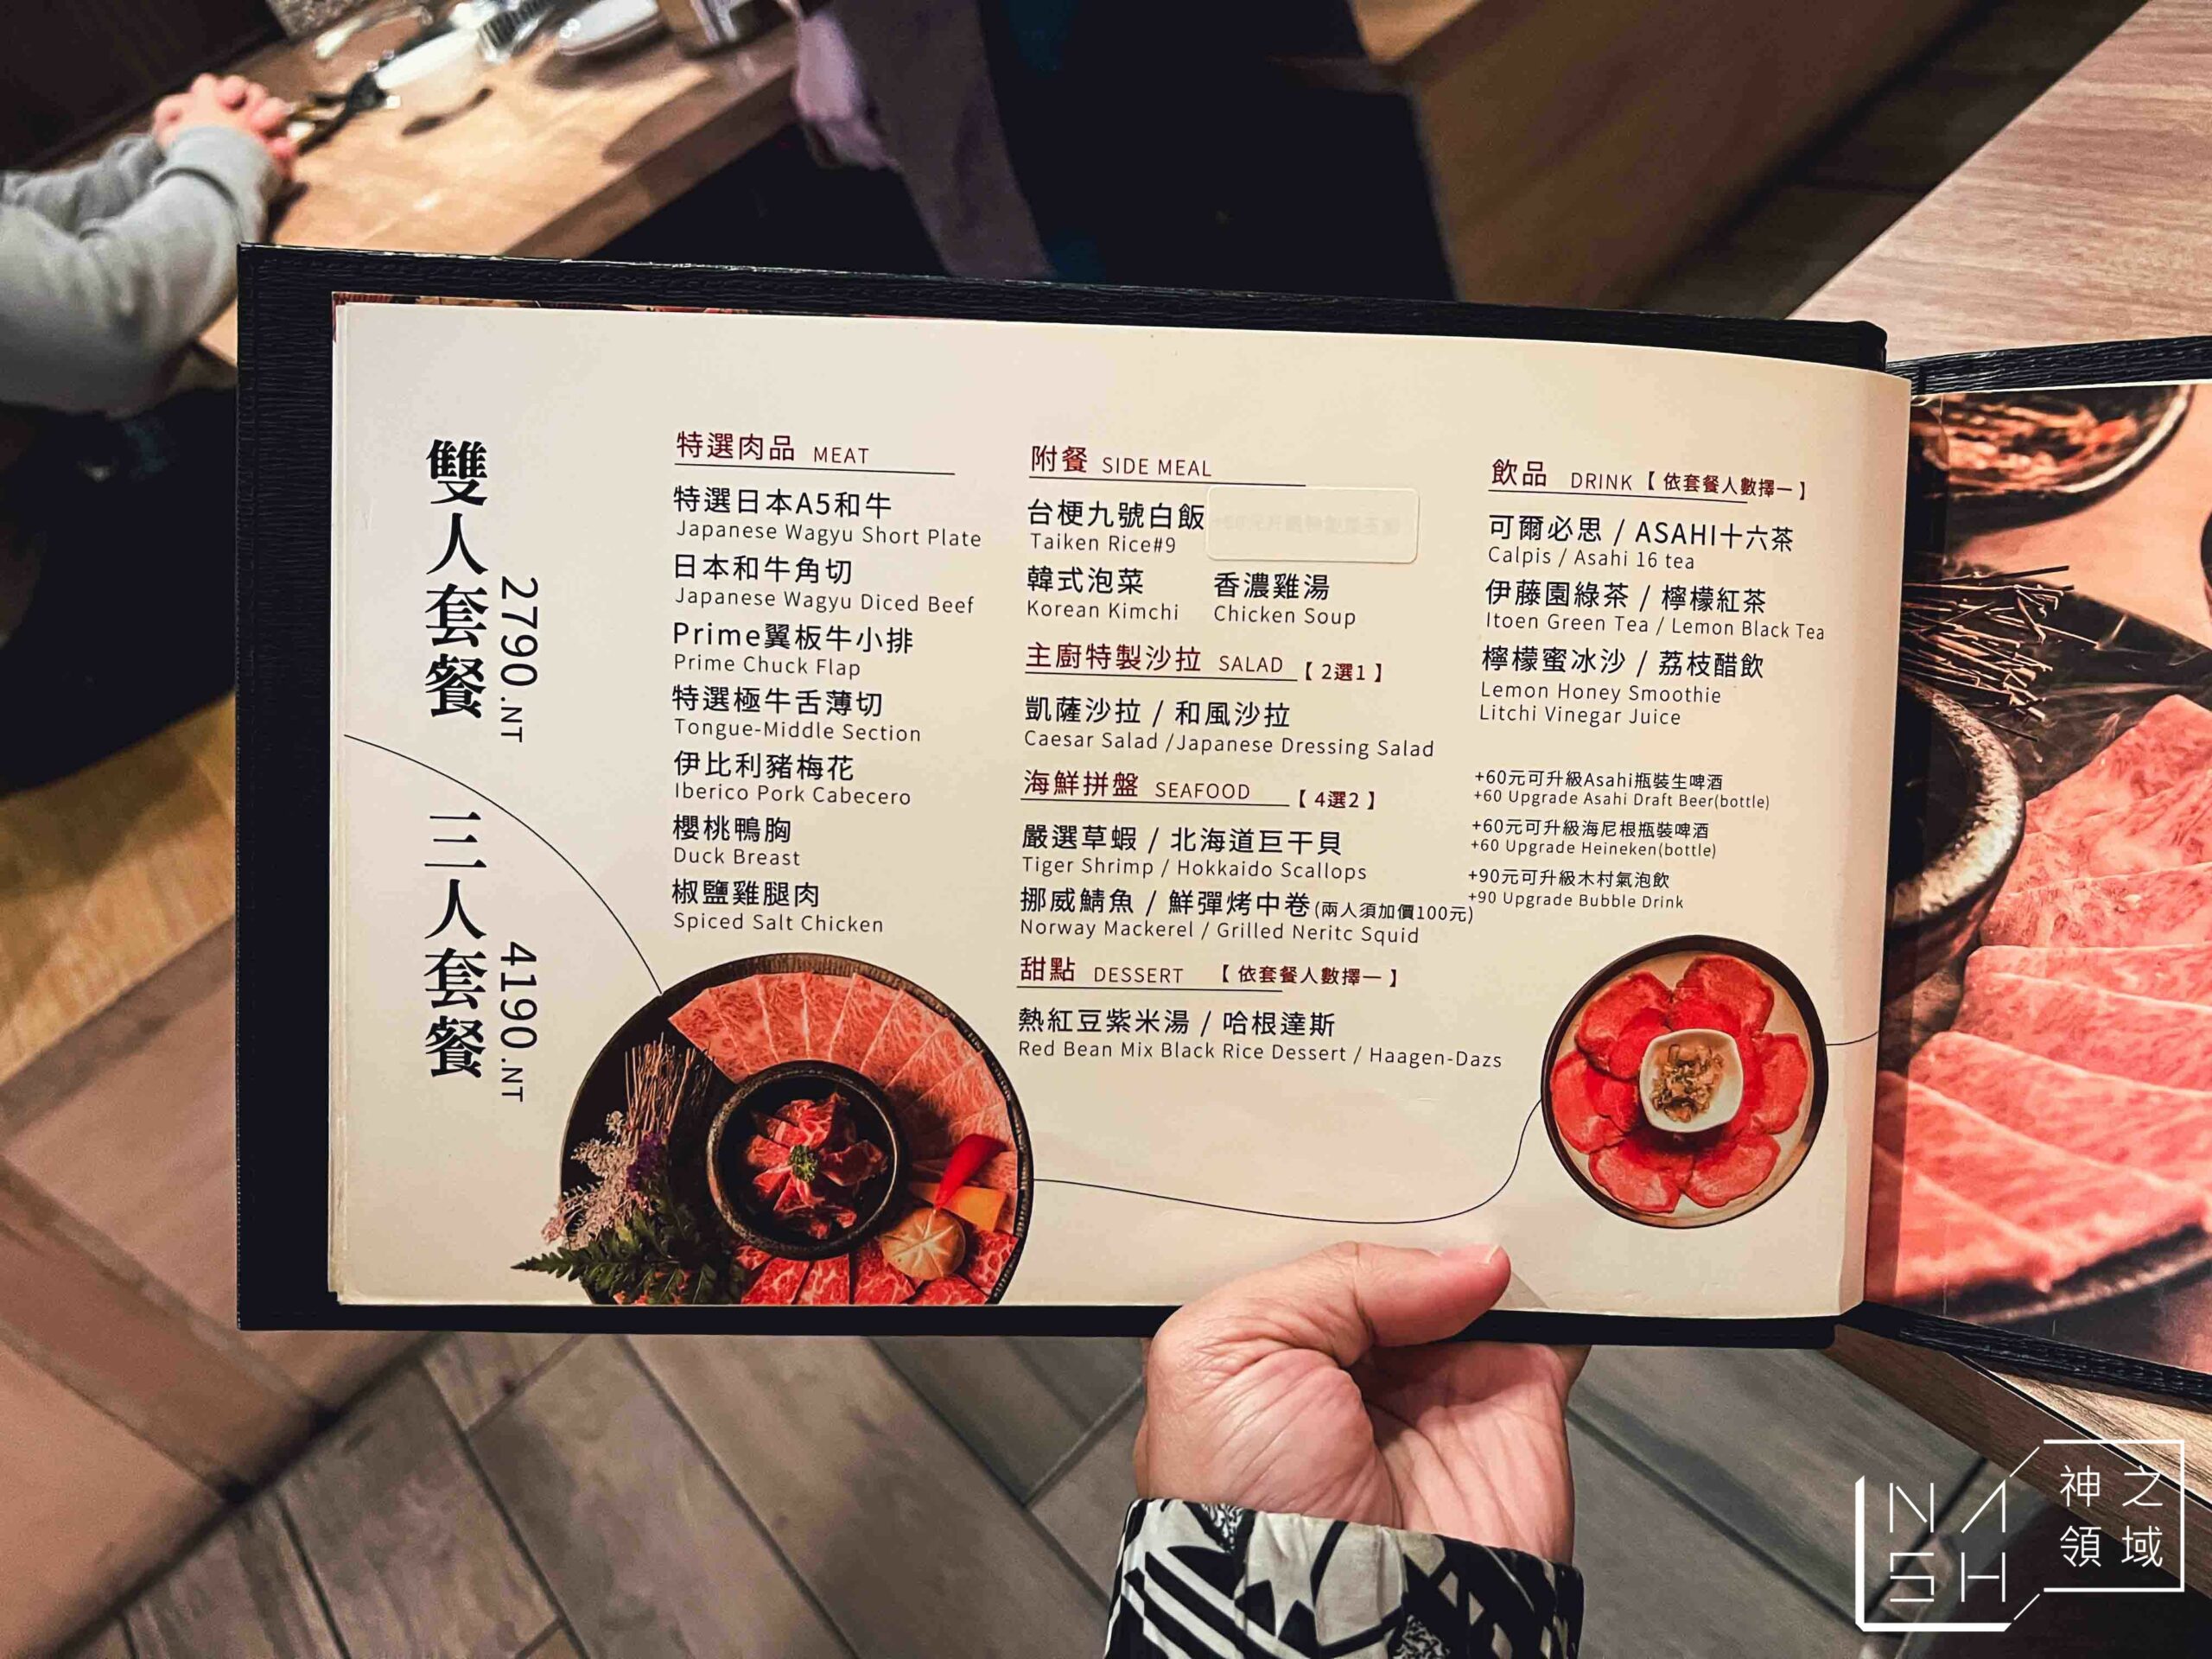 雙人套餐
2790.NT
三人套餐
4190.NT
特選肉品 MEAT
特選日本A5和牛
Japanese Wagyu Short Plate
日本和牛角切
Japanese Wagyu Diced Beef
Prime翼板牛小排
Prime Chuck Flap
特選極牛舌薄切
Tongue-Middle Section
伊比利豬梅花
Iberico Pork Cabecero
櫻桃鴨胸
Duck Breast
椒鹽雞腿肉
Spiced Salt Chicken
附餐 SIDE MEAL
台梗九號白飯
Taiken Rice#9
韓式泡菜 香濃雞湯
Korean Kimchi Chicken Soup
主廚特製沙拉 SALAD 【2選1】
凱薩沙拉 / 和風沙拉
Caesar Salad /Japanese Dressing Salad
海鮮拼盤 SEAFOOD 【4選2】
嚴選草蝦 / 北海道巨干貝
Tiger Shrimp / Hokkaido Scallops
挪威鯖魚 / 鮮彈烤中卷(兩人須加價100元)
Norway Mackerel / Grilled Neritc Squid
甜點 DESSERT 【依套餐人數擇一】
熱紅豆紫米湯 / 哈根達斯
Red Bean Mix Black Rice Dessert / Haagen-Dazs
飲品 DRINK【依套餐人數擇一】
可爾必思 / ASAHI十六茶
Calpis / Asahi 16 tea
伊藤園綠茶 / 檸檬紅茶
Itoen Green Tea / Lemon Black Tea
檸檬蜜冰沙 / 荔枝醋飲
Lemon Honey Smoothie
Litchi Vinegar Juice
+60元可升級Asahi瓶裝生啤酒
+60 Upgrade Asahi Draft Beer(bottle)
+60元可升級海尼根瓶裝啤酒
+60 Upgrade Heineken(bottle)
+90元可升級木村氣泡飲
+90 Upgrade Bubble Drink
NASH
神之領域